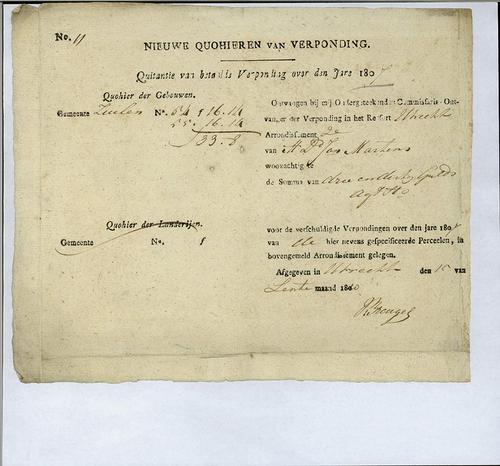 No. 11
NIEUWE QUOHIEREN VAN VERPONDING.
Quitantie van betaalde Verponding over den Jare 1807
Quohier der Gebouwen.
Gemeente Zuilen No. 54 f 16.14
55 - 16.14
f 33.8
Ontvangen bij mij Ondergeteekende Commissaris-Ont-
vanger der Verponding in het Ressort Utrecht
Arrondissement 2e
van
woonachtig te
de Somma van drie en dertig Guldn
agt St
Quohier der Landerijen.
Gemeente No. f
voor de verschuldigde Verpondingen over den jare 1807
van de hier nevens gespecificeerde Perceelen, in
bovengemeld Arrondissement gelegen.
Afgegeven in Utrecht den 15 van
Lente maand 1810